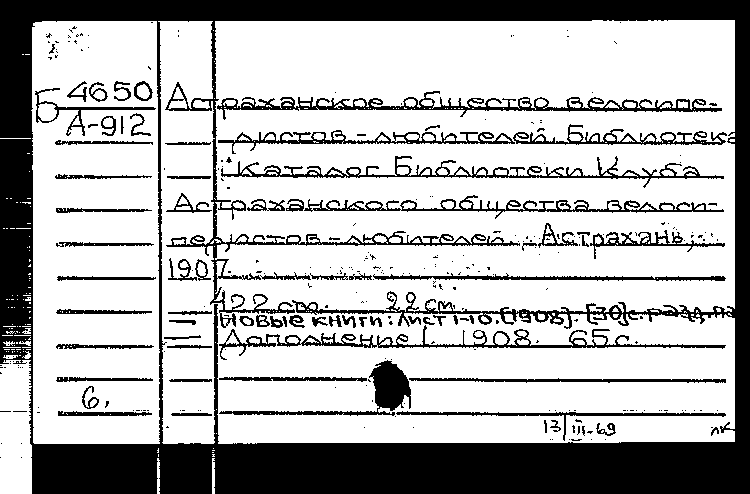 Б 4650
А-912
Астраханское общество велосипе-
дистов-любителей. Библиотека
Каталог Библиотеки Клуба
Астраханского общества велоси-
педистов-любителей. Астрахань,
1907.
422 стр. 22 см.
— Новые книги: Лист 1-10. [1908]. [30] с. разд. паг.
— Дополнение I. 1908. 65 с.
6.
13/III-69 лк